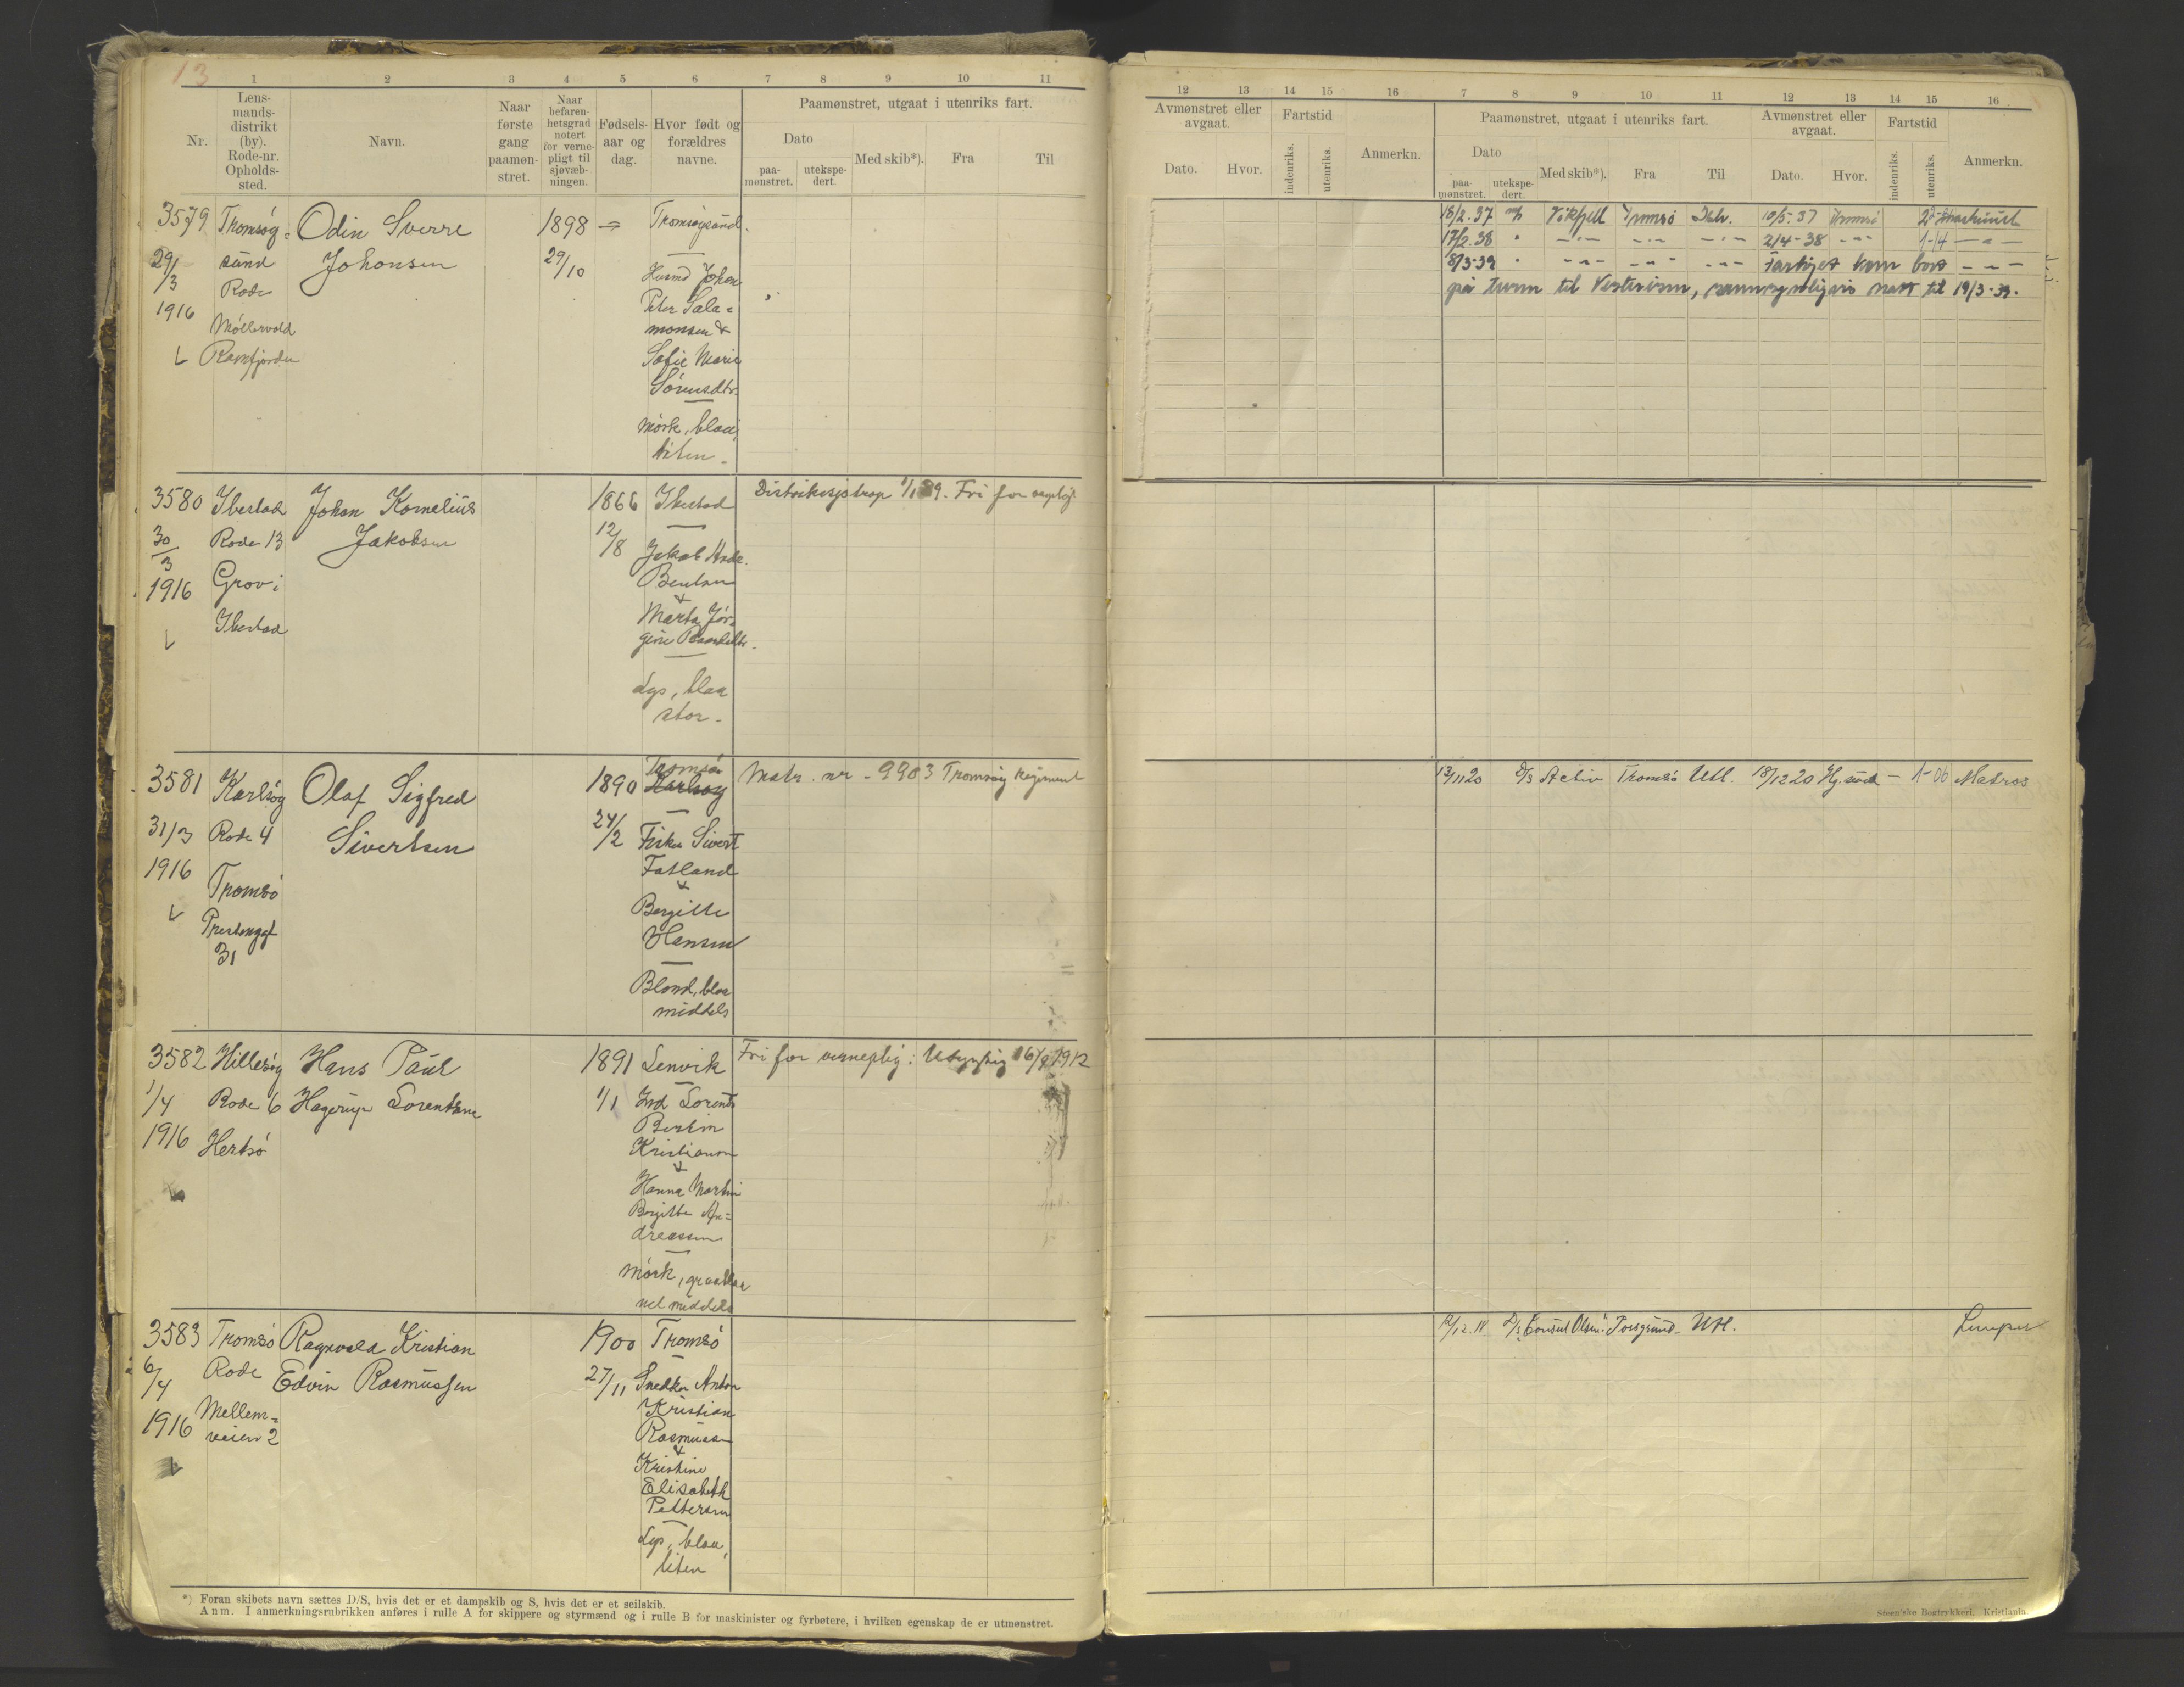 13
1 2 3 4 5 6 7 8 9 10 11
Nr.
Lens-
mands-
distrikt
(by).
Rode-nr.
Opholds-
sted.
Navn.
Naar
første
gang
paamøn-
stret.
Naar
befaren-
hetsgrad
notert
for verne-
pligt til
sjøvæb-
ningen.
Fødsels-
aar og
dag.
Hvor født og
forældres
navne.
Paamønstret, utgaat i utenriks fart.
Dato
paa-
mønstret.
utekspe-
dert.
Med skib*).
Fra
Til
3579
29/3
1916
Tromsøy=
sund
Rode
Møllervold
Ramfjorden
Odin Sverre
Johansen
1898
29/10
Tromsøysund.
Husmd Johan
Peter Sala=
monsen &
Sofie Marie
Sørensdtr.
Mørk, blaa,
liten.
3580
30/3
1916
Ibestad
Rode 13
Grov i
Ibestad
Johan Kornelius
Jakobsen
1866
12/8
Ibestad
Jakob Andr.
Bentsen
&
Marta Jør=
gine
Lys, blaa
stor.
Fri for
3581
31/3
1916
Karlsøy
Rode 4
Tromsø
Prestenggt
31
Olaf Sigfred
Sivertsen
1890
24/2
Tromsø
Karlsøy
Fisker Sivert
Fatland
&
Bergitte
Hansen
Blond, blaa
middels
Matr. nr. 9903 Tromsøy Regiment
3582
1/4
1916
Hillesøy
Rode 6
Hertsø
Hans Paul
Hagerup Lorentsen
1891
1/1
Lenvik
Ind Lorents
Kristianson
&
Hanna Martin
Bergitte An=
dreassen
Mørk, graablaa
vel middels
Fri for verneplig: Udyktig 16/9 1912
3583
6/4
1916
Tromsø
Rode
Mellem=
veien 2
Ragnvald Kristian
Edvin Rasmussen
1900
27/11
Tromsø
Snedker Anton
Kristian
Rasmussen
&
Kristine
Elisabeth
Pettersen
Lys, blaa,
liten
*) Foran skibets navn sættes D/S, hvis det er et dampskib og S, hvis det er et seilskib.
Anm. I anmerkningsrubrikken anføres i rulle A for skippere og styrmænd og i rulle B for maskinister og fyrbøtere, i hvilken egenskap de er utmønstret.
12 13 14 15 16 7 8 9 10 11 12 13 14 15 16
Avmønstret eller
avgaat.
Dato.
Hvor.
Fartstid
indenriks.
utenriks.
Anmerkn.
Paamønstret, utgaat i utenriks fart.
Dato
paa-
mønstret.
utekspe-
dert.
Med skib*).
Fra
Til
Avmønstret eller
avgaat.
Dato.
Hvor.
Fartstid
indenriks.
utenriks.
Anmerkn.
18/2.37 m/s Vikfjell Tromsø Ishv. 10/5.37 Tromsø
17/2.38 " — " — — " — — " — 2/4-38 — " — 1-14 — " —
8/3-39 " — " — — " — — " — Fartøyet kom bort — " —
på turen til Vesterisen, sannsynligvis natt til 19/3-39.
13/11 20 D/S Activ Tromsø Utl. 18/12 20 — 1-06 Matros
12/12.18 D/S Consul Olsen Porsgrund Utl. Lemper
Steen'ske Bogtrykkeri. Kristiania